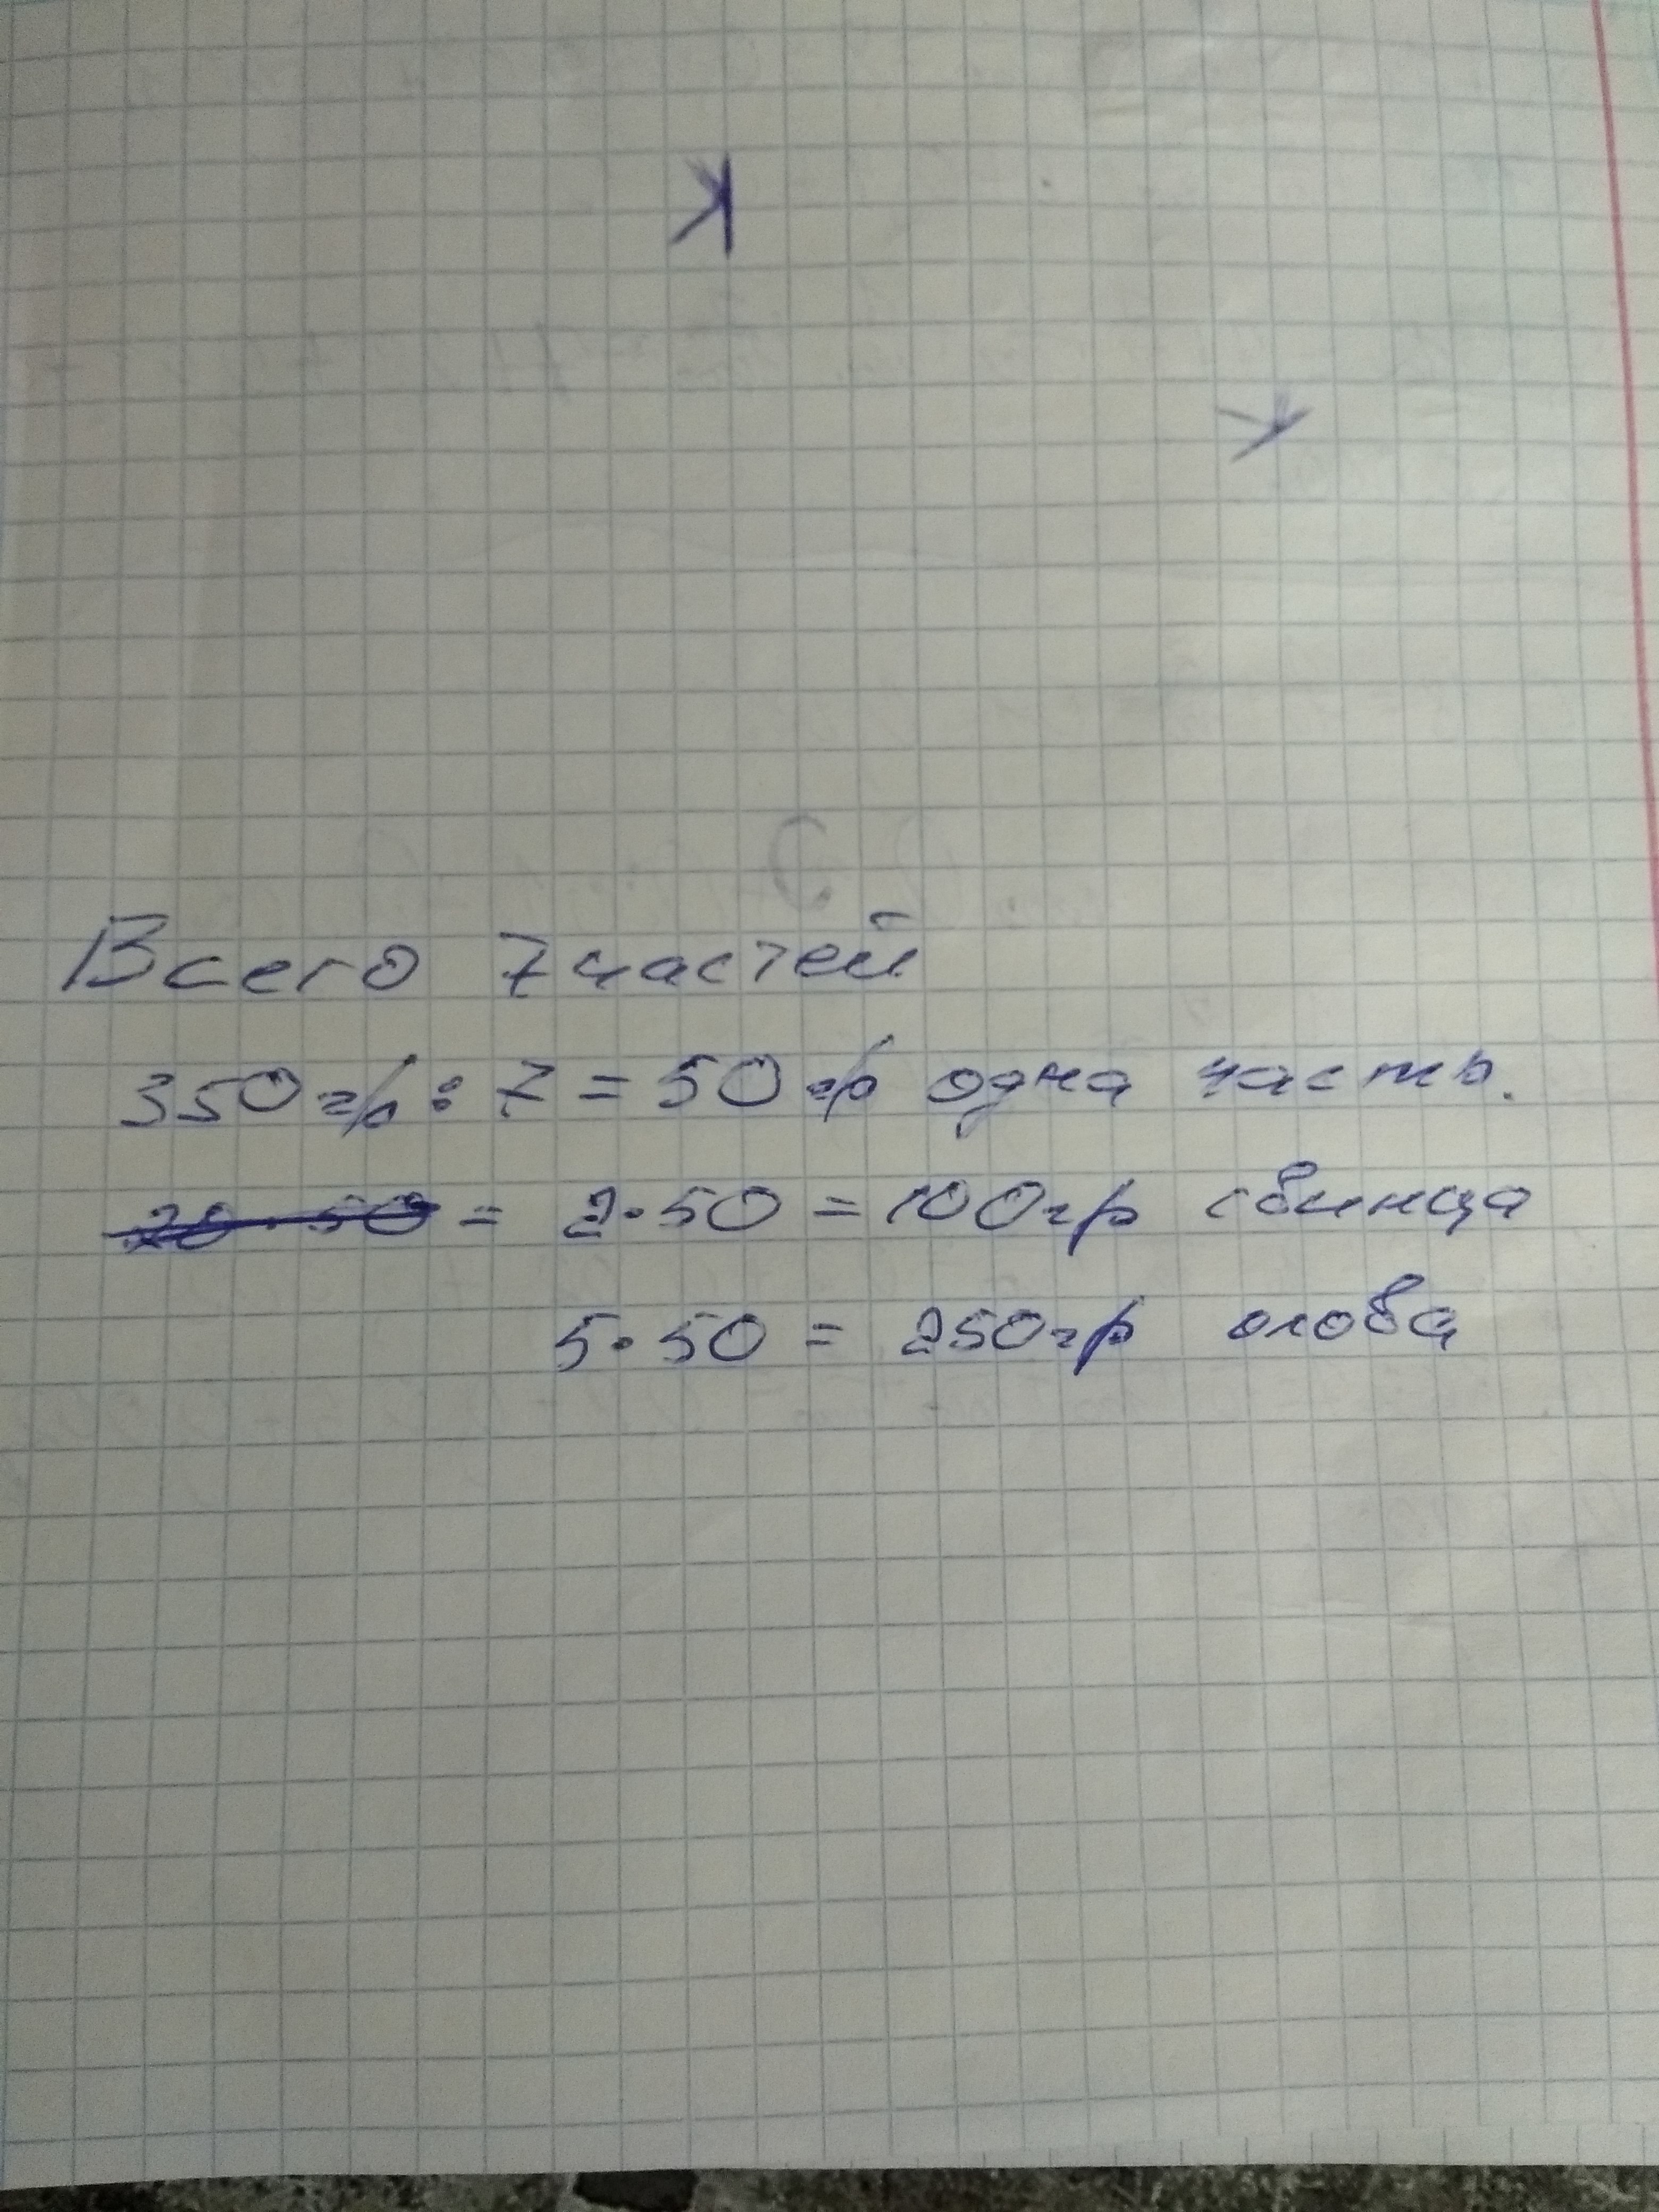 Всего 7 частей
350 гр : 7 = 50 гр одна часть.
20 · 50 = 2 · 50 = 100 гр свинца
5 · 50 = 250 гр олова